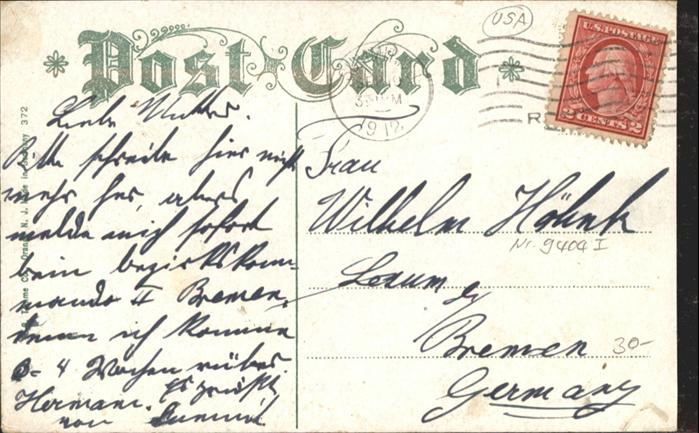 USA
Post Card
U.S. POSTAGE
2 CENTS 2
3 PM
1912
Liebe Mutter.
Bitte schreibe hier nicht
mehr her, aber
melde mich sofort
beim Bezirkskom-
mando II Bremen,
denn ich komme
3-4 Wochen rüber.
Hermann. Es grüßt
von
Frau
Wilhelm
Nr. 9404 I
Lesum b/
Bremen
30-
Germany
372